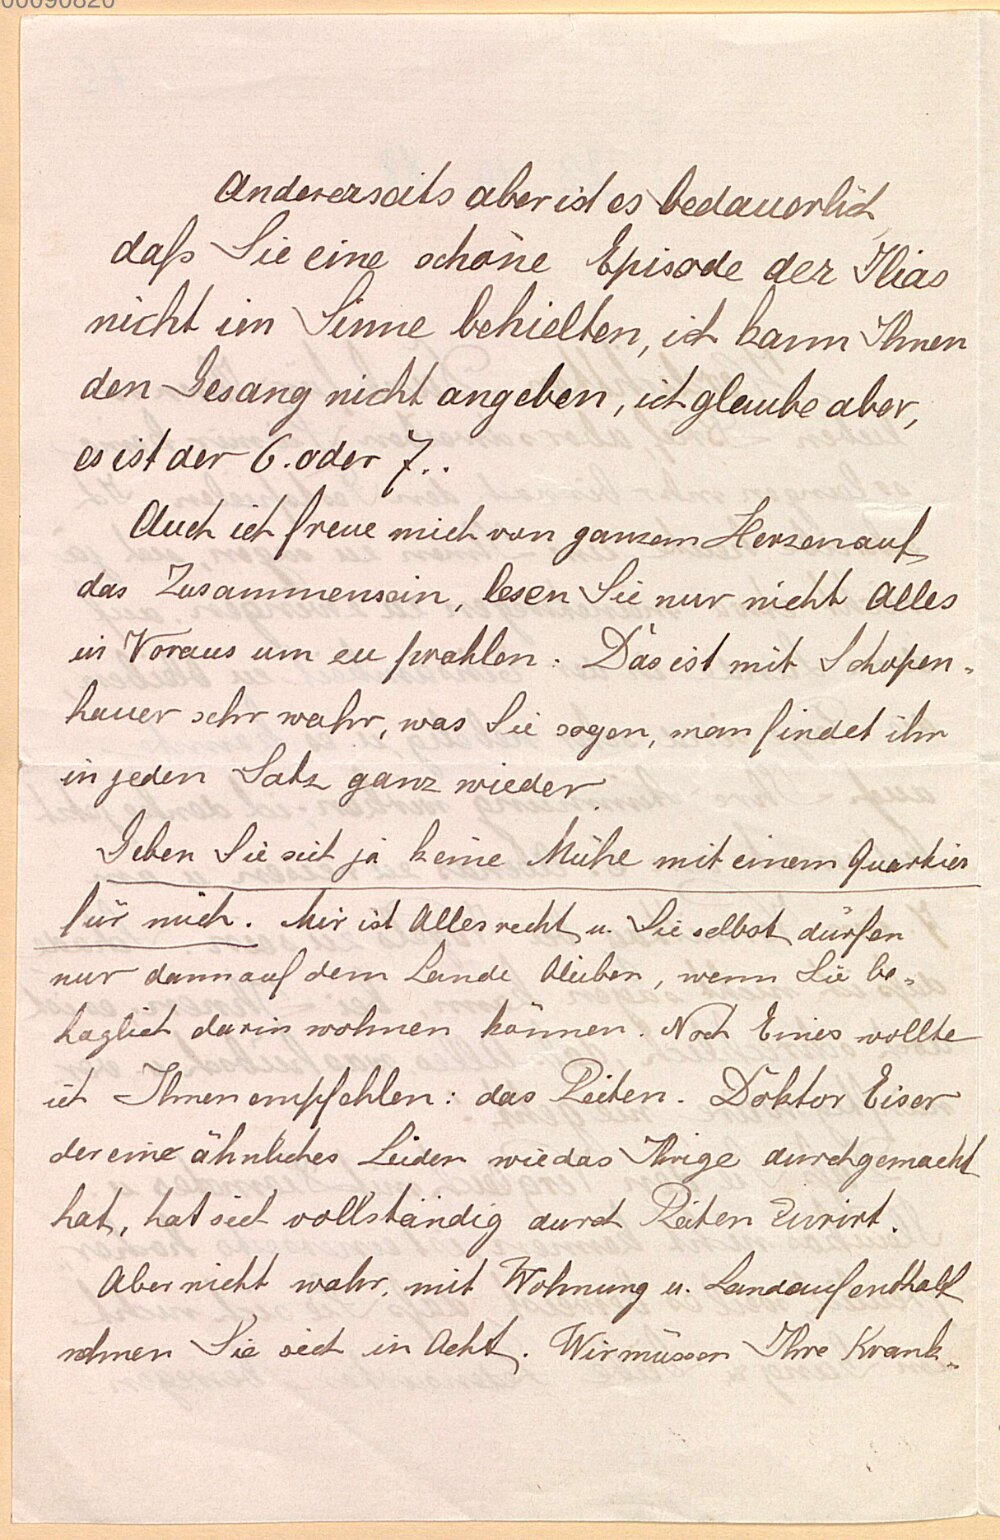 00090820
Andererseits aber ist es bedauerlich
daß Sie eine schöne Episode der Ilias
nicht im Sinne behielten, ich kann Ihnen
den Gesang nicht angeben, ich glaube aber,
es ist der 6. oder 7..
Auch ich freue mich von ganzem Herzen auf
das Zusammensein, lesen Sie nur nicht Alles
in Voraus um zu prahlen. Das ist mit Schopen-
hauer sehr wahr, was Sie sagen, man findet ihn
in jeden Satz ganz wieder.
Geben Sie sich ja keine Mühe mit einem Quartier
für mich. Mir ist Alles recht u. Sie selbst dürfen
nur dann auf dem Lande bleiben, wenn Sie be-
haglich darin wohnen können. Noch Eines wollte
ich Ihnen empfehlen: das Reiten. Doktor Eiser
der eine ähnliches Leiden wie das Ihrige durchgemacht
hat, hat sich vollständig durch Reiten curirt.
Aber nicht wahr, mit Wohnung u. Landaufenthalt
nehmen Sie sich in Acht. Wir müssen Ihre Krank-